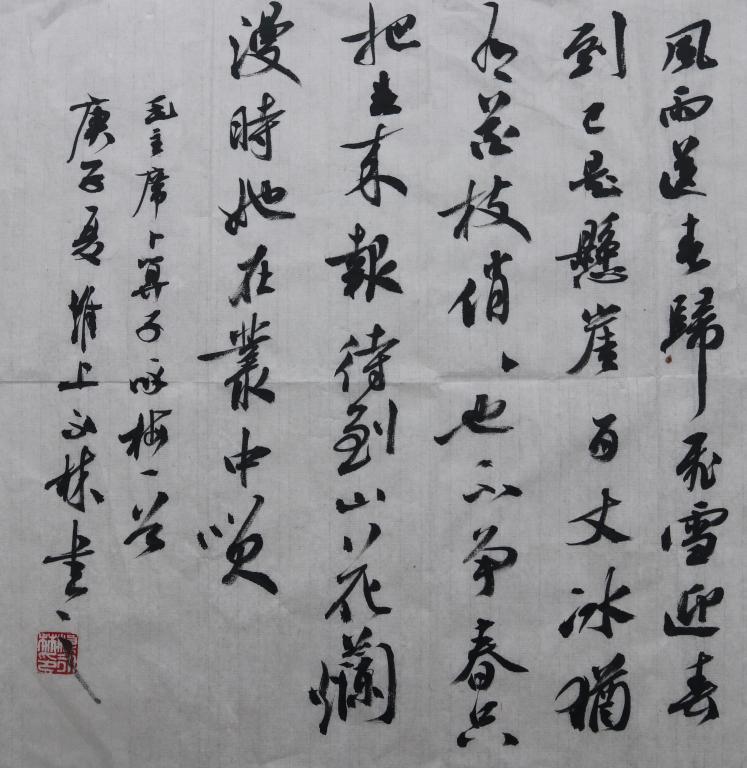 風雨送春歸飛雪迎春
到已是懸崖百丈冰猶
有花枝俏、也不争春只
把春来報待到山花爛
漫時她在叢中笑
毛主席卜算子咏梅一首
庚子夏淮上永林書